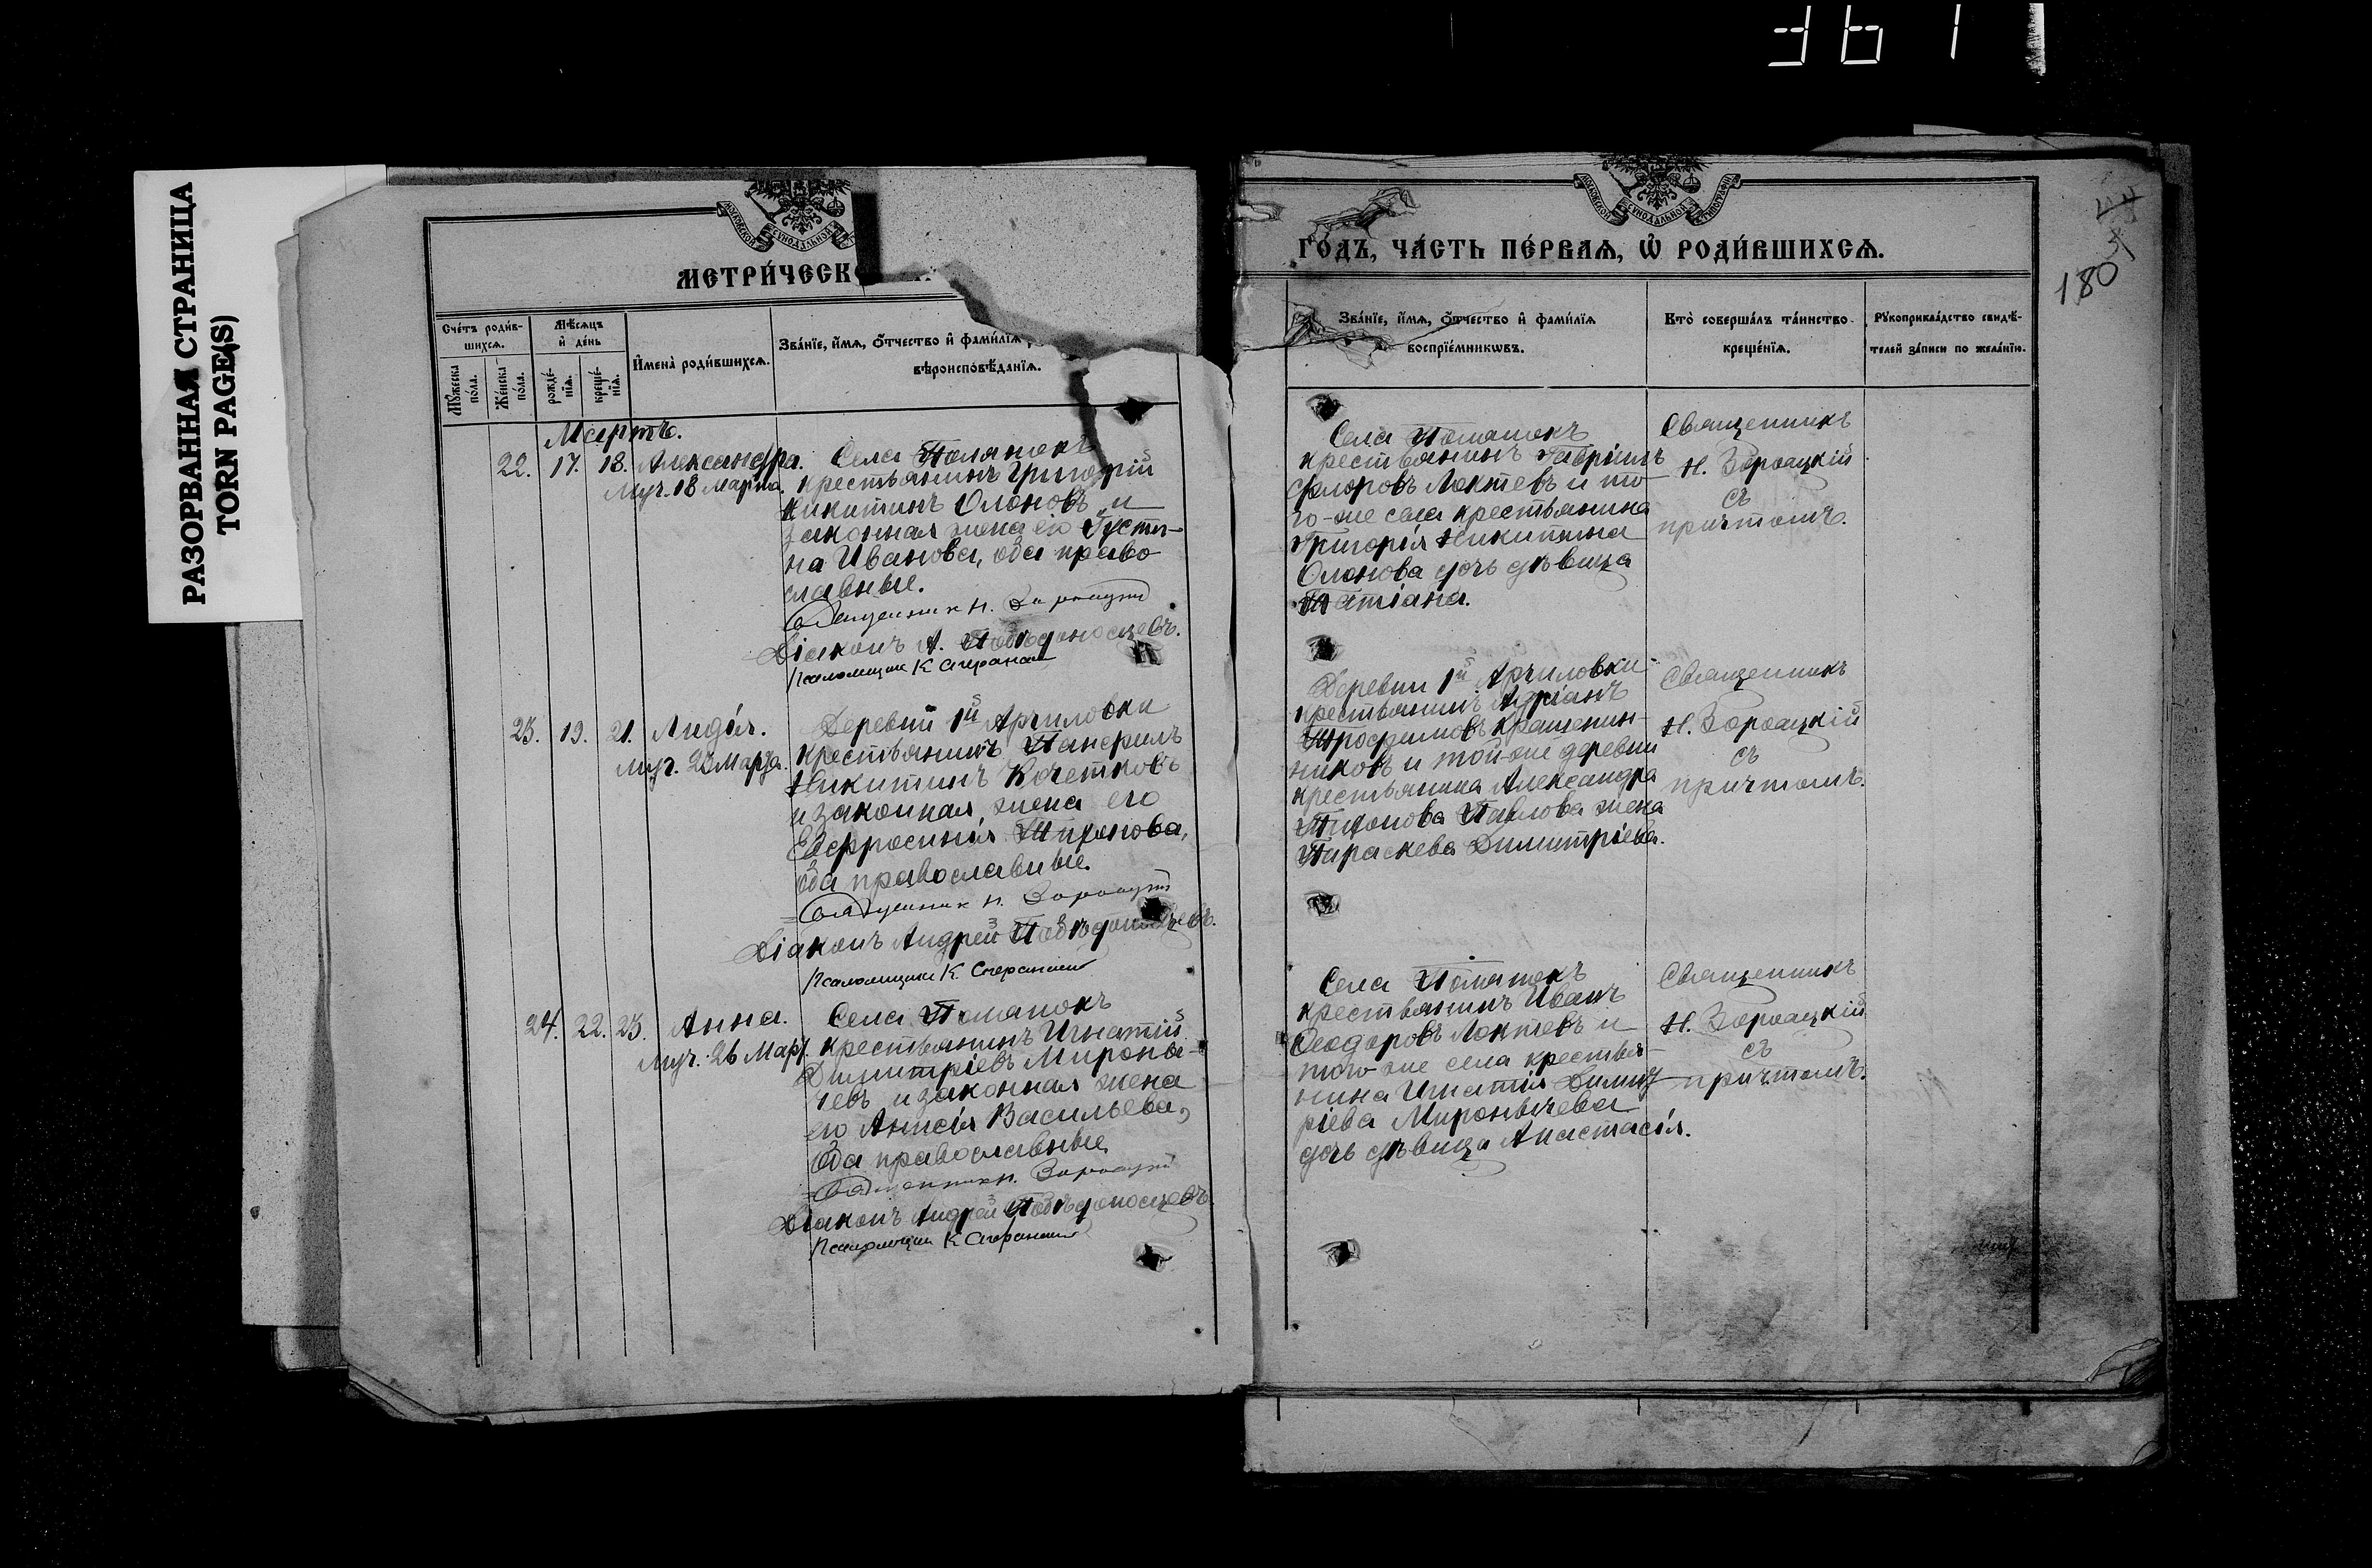 1961
РАЗОРВАННАЯ СТРАНИЦА
TORN PAGE(S)
МОСКОВСКОЙ СѴНОДАЛЬНОЙ
МЕТРИ́ЧЕСК
Сче́тъ роди́в-
шихсѧ.
Мꙋ́жеска по́ла.
Же́нска по́ла.
Мѣ́сѧцъ и҆ де́нь
рожде́-нїѧ.
креще́-нїѧ.
И҆мена̀ роди́вшихсѧ.
Зва́нїе, и҆́мѧ, ѻ҆́тчество и҆ фами́лїѧ
вѣроисповѣ́данїѧ.
Мартъ.
22. 17. 18. Александра.
Муч. 18 Марта.
Села
крестьянинъ Григорій
Никитинъ Олоновъ и
законная жена его Густи-
на Иванова, оба право-
славные.
Священникъ Н.
Діаконъ А. Побѣдоносцевъ.
Псаломщик К
23. 19. 21. Лидія.
муч. 23 Марта.
Деревни 1й Арчиловки
крестьянинъ Панфилъ
Никитинъ Кочетковъ
и законная жена его
Евфросинія Тихонова,
оба православные.
Священник Н.
Діаконъ Андрей Побѣдоносцевъ.
Псаломщик К.
24. 22. 23. Анна.
муч. 26 Март.
Села
крестьянинъ Игнатій
Димитріевъ Мироны-
чевъ и законная жена
его Анисія Васильева,
оба православные.
Священник Н.
Діаконъ Андрей Побѣдоносцевъ.
Псаломщик К
МОСКОВСКОЙ СѴНОДАЛЬНОЙ ТИПОГРАФІИ
ГО́ДЪ, ЧА́СТЬ ПЕ́РВАѦ, Ѽ РОДИ́ВШИХСѦ.
180
Зва́нїе, и҆́мѧ, ѻ҆́тчество и҆ фами́лїѧ
воспрїе́мникѡвъ.
Кто̀ соверша́лъ та́инство
креще́нїѧ.
Рꙋкоприкла́дство свидѣ́-
телей за́писи по жела́нїю.
Села
крестьянинъ Гавріилъ
Флоровъ Локтевъ и то-
го-же села крестьянина
Григорія Никитина
Олонова дочь дѣвица
Татіана.
Священникъ
Н.
съ
причтомъ.
Деревни 1й Арчиловки
крестьянинъ Адріанъ
Трофимовъ Крашенин-
никовъ и той-же деревни
крестьянина Александра
Тихонова Павлова жена
Параскева Димитріева.
Священникъ
Н.
съ
причтомъ.
Села
крестьянинъ Иванъ
Ѳеодоровъ Локтевъ и
того-же села крестья-
нина Игнатія Димит-
ріева Миронычева
дочь дѣвица Анастасія.
Священникъ
Н.
съ
причтомъ.